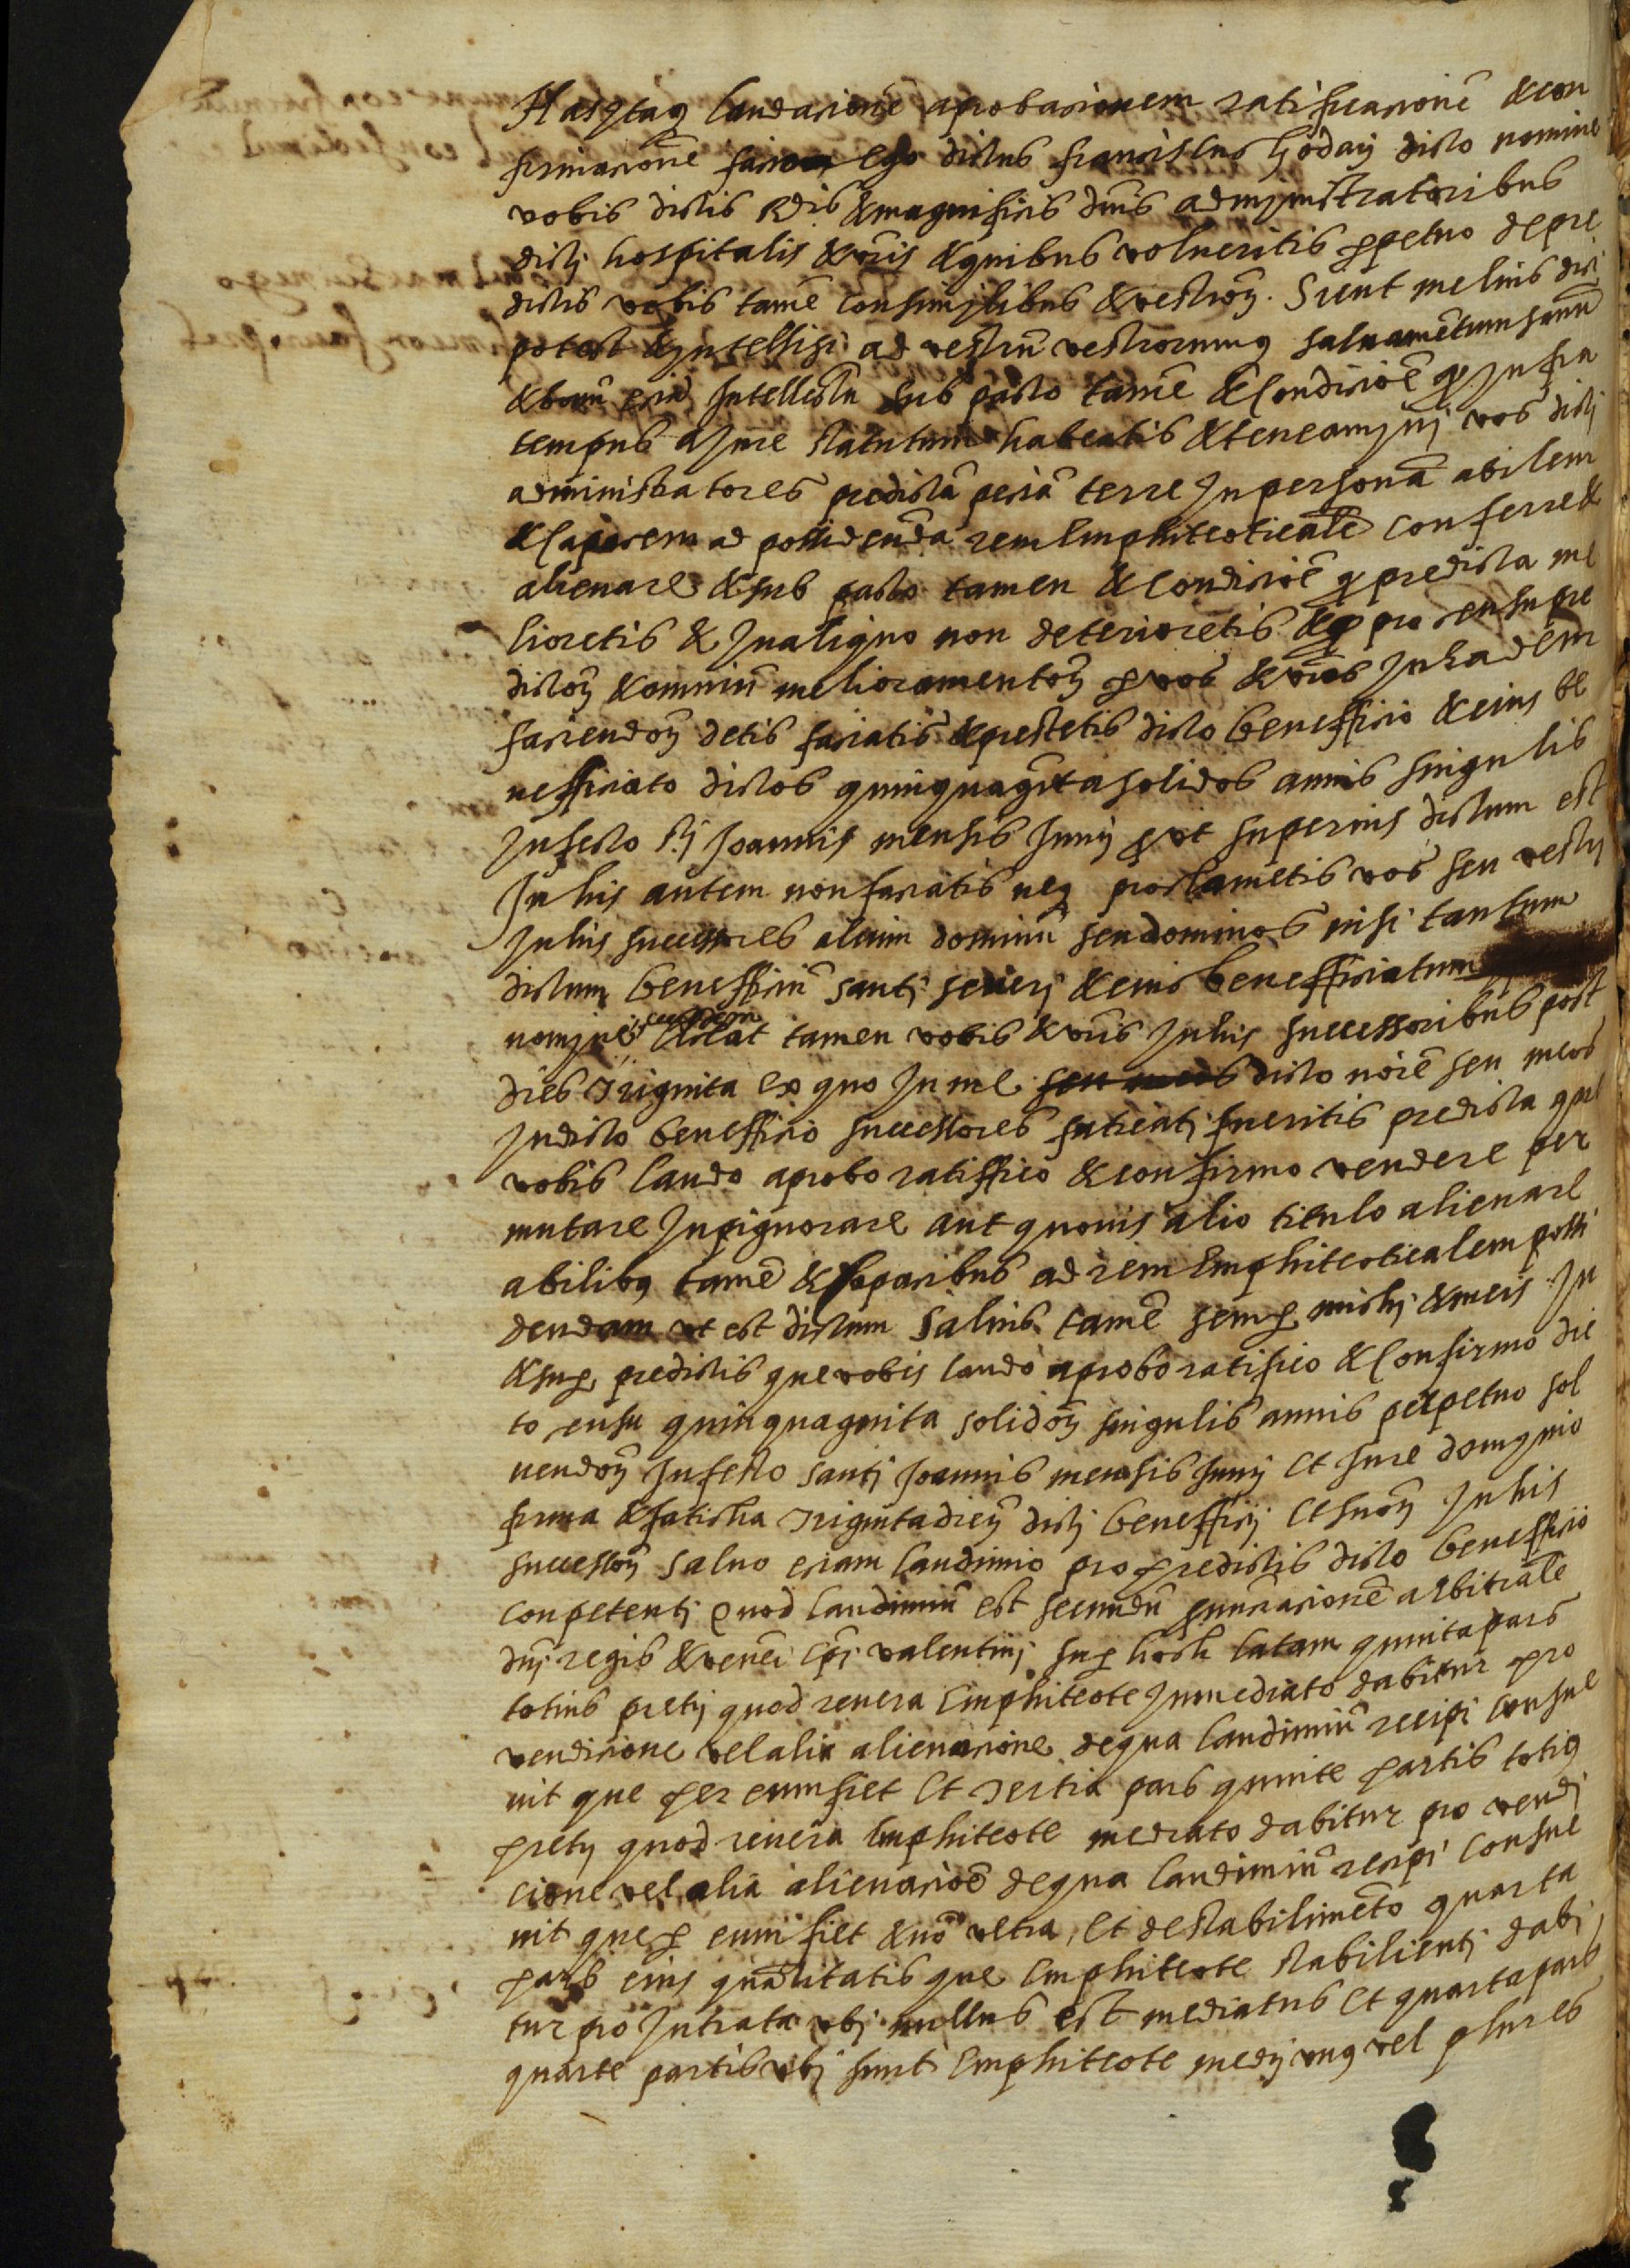 Hasytaq laudacionē aprobacionem ratificacionē & con
firmacionē facio ego dictus franciscus godayj dicto nomine
vobis dictis Rdis & magnificis dnis admynistratoribus
dictj hospitalis & vris & quibus volueritis ꝑpetuo de pre
dictis vobis tamē consimjlibus & vestroꝝ. Sicut melius dici
potest & yntelligi ad vestrū vestrorumq saluamētum sanū
& bonū eciā Intellectū sub pacto tamē & Condicioē ꝙ ynfra
tempus a Jure statutum habeatis & teneamynj vos dictj
administratores predictā peciā terre yn personā abilem
& Capacem ad possidendā rem Emphiteoticalē conferre &
alienare & sub pacto tamen & Condicioē ꝙ predicta me
lioretis & yn aliquo non deterioretis & ꝙ pro censu pre
dictoꝝ & omniū melioramentoꝝ ꝑ vos & vros yn Eadem
faciendoꝝ detis faciatis & prestetis dicto beneffitio & eius be
nefficiato dictos quinquagīta solidos annis singulis
yn festo stj Joannis mensis Junij ꝓut superius dictum est
Jn his autem non faciatis neq proclametis vos seu vestrj
yn his successores alium dominū seu dominos nisi tantum
dictum benefficiū santj seuerj & eius benefficiatum
nomjne eiusdem Liceat tamen vobis & vris yn his successoribus post
dies Triginta Ex quo yn me seu meos dicto noīe seu meos
yn dicto beneffitio successores faticatj fueritis predicta que
vobis laudo aprobo ratiffico & confirmo vendere per
mutare ynpignorare aut quouis alio titulo alienare
abilibus tamē & Capacibus ad rem Emphiteoticalem possi
dendam vt est dictum Saluis tamē semꝑ michj & meis yn
& suꝑ predictis que vobis laudo aprobo ratifico & Confirmo dic
to censu quinquaginta solidoꝝ singulis annis perpetuo sol
uendoꝝ yn festo santj Joannis mensis Junij Et Jure domynio
firma & faticha Triginta dieꝝ dictj benefficij Et suoꝝ yn his
successoꝝ Saluo eciam laudimio pro predictis dicto beneffitio
conpetentj Quod laudimiū est secundū pnunciacionē arbitralē
dnj regis & veneī Epī valentinj suꝑ hoch latam quinta pars
totius pretij quod reuera Emphiteote ynmediato dabitur pro
vendicione vel alia alienacione de qua laudimiū recipi consue
uit que per eum fiet Et Tertia pars quinte partis totiꝯ
pretij quod reuera Emphiteote mediato dabitur pro vendj
cione vel alia alienacioē de qua laudimiū recipi consue
uit que ꝑ eum fiet & nō vltra, Et de stabilimēto quarta
pars eius quātitatis que Emphiteote stabilientj dabj
tur pro yntrata vbj nullus est mediatus Et quarta pars
quarte partis vbj sunt Emphiteote medij vnꝯ vel plures